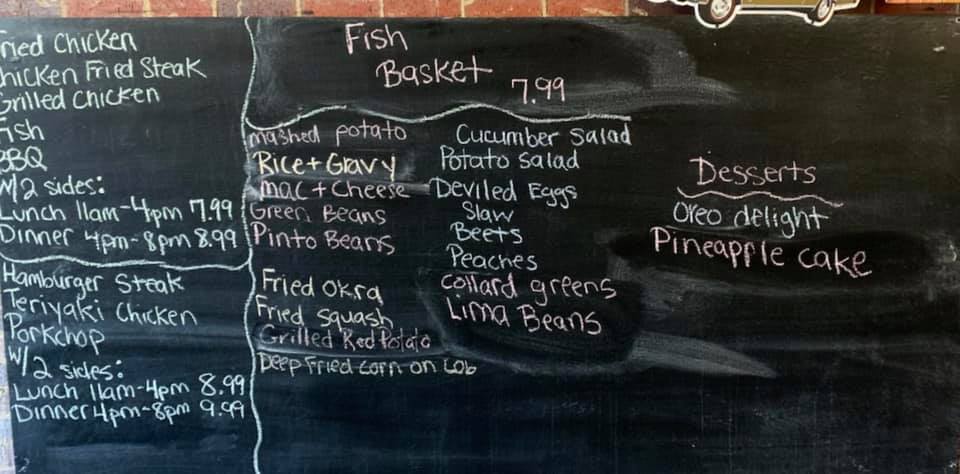 Fried Chicken
Chicken Fried Steak
Grilled Chicken
Fish
BBQ
W/2 sides:
Lunch 11am-4pm 7.99
Dinner 4pm-8pm 8.99
Hamburger Steak
Teriyaki Chicken
Porkchop
W/2 sides:
Lunch 11am-4pm 8.99
Dinner 4pm-8pm 9.99
Fish
Basket 7.99
mashed potato
Rice + Gravy
mac + Cheese
Green Beans
Pinto Beans
Fried Okra
Fried squash
Grilled Red Potato
Deep Fried corn on cob
Cucumber Salad
Potato Salad
Deviled Eggs
Slaw
Beets
Peaches
collard greens
Lima Beans
Desserts
Oreo delight
Pineapple cake